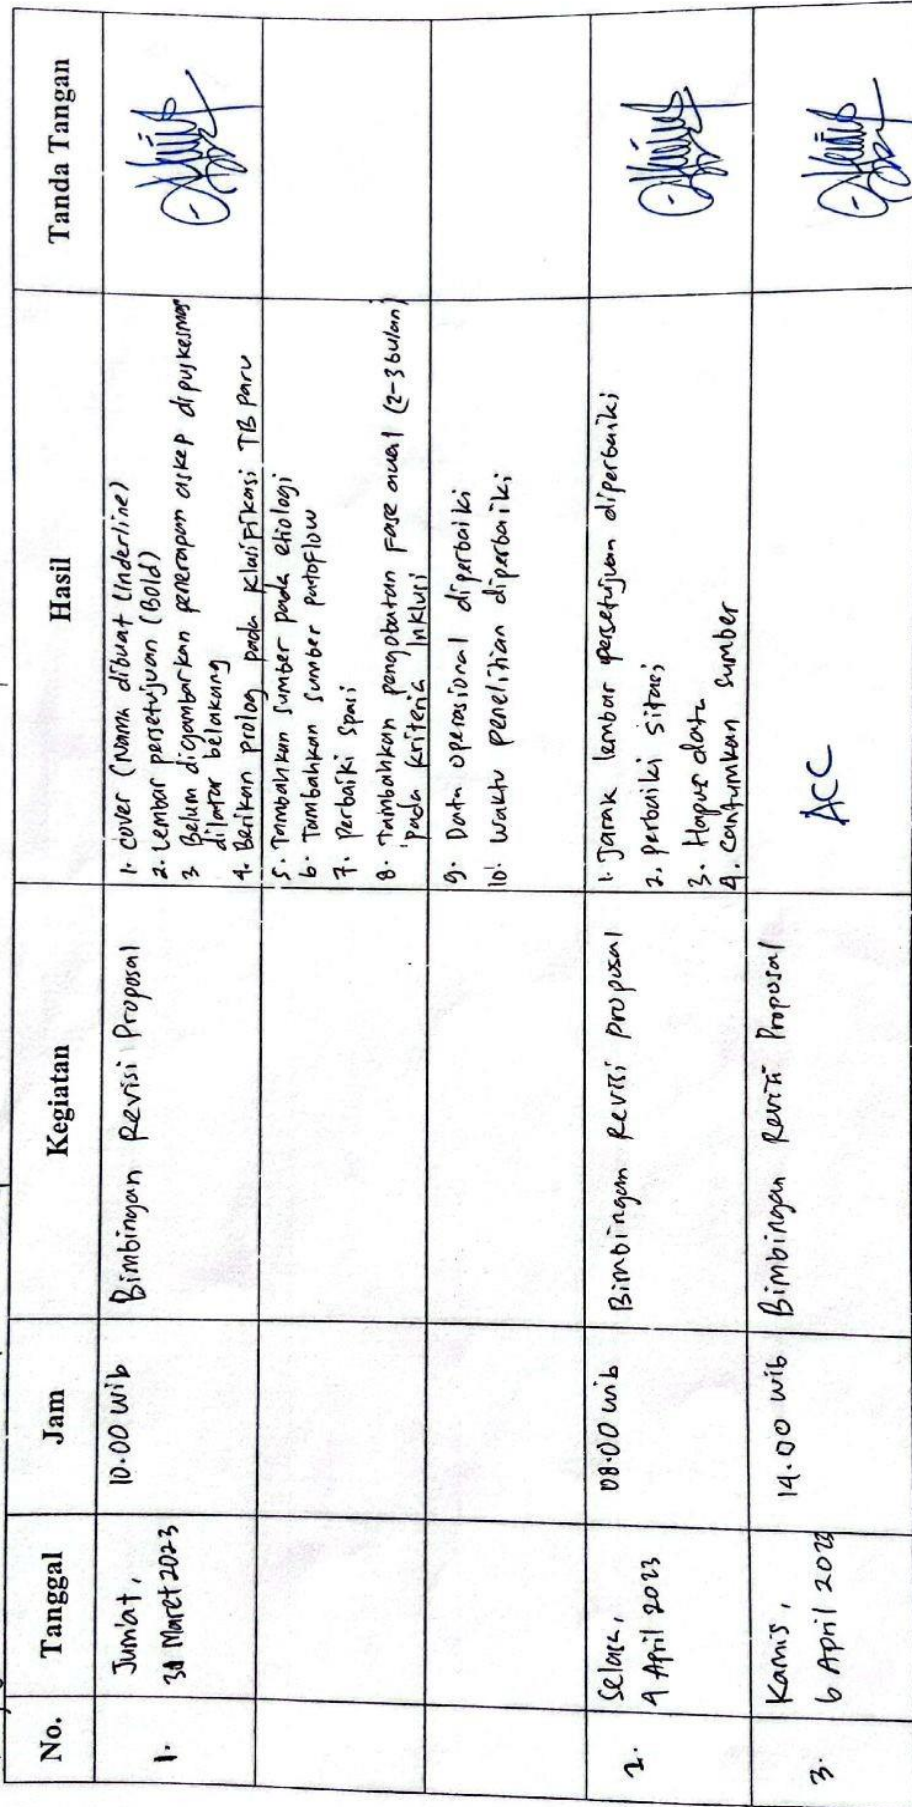 No. Tanggal Jam Kegiatan Hasil Tanda Tangan
1. Jum'at, 10.00 wib Bimbingan Revisi Proposal
31 Maret 2023
1. Cover (Nama dibuat Underline)
2. Lembar persetujuan (Bold)
3 Belum digambarkan penerapan askep dipuskesmas
dilatar belakang
4. Berikan prolog pada klasifikasi TB Paru
5. Tambahkan sumber pada etiologi
6. Tambahkan sumber patoflow
7. Perbaiki spasi
8. Tambahkan pengobatan fase awal (2-3 bulan)
pada kriteria Inklusi
9. Data operasional diperbaiki
10. Waktu penelitian diperbaiki
2. Selasa, 08.00 wib Bimbingan Revisi proposal
4 April 2023
1. Jarak lembar persetujuan diperbaiki
2. perbaiki sitasi
3. Hapus data
4. Cantumkan sumber
3. Kamis, 14.00 wib Bimbingan Revisi Proposal
6 April 2023
ACC